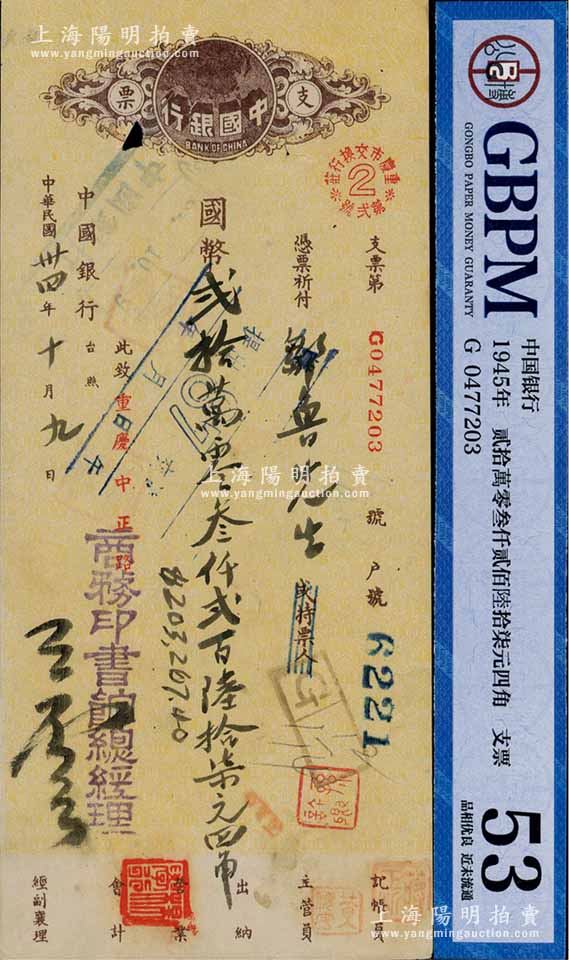 上海陽明拍賣
www.yangmingauction.com
支票
中國銀行
BANK OF CHINA
重慶市交換行莊
2
第貳號
支票第
G0477203
號戶號
6221
憑票祈付
鄒魯先生
或持票人
國幣貳拾萬零叁仟弍百陸拾柒元四角
$203,267.40
此致重慶中正路
中國銀行
台照
中華民國卅四年十月九日
商務印書館總經理
王雲五
記帳員
主管員
出納
營業
會計
經副襄理
上海陽明拍賣
www.yangmingauction.com
上海陽明拍賣
www.yangmingauction.com
公博
GBPM
GONGBO PAPER MONEY GUARANTY
中国银行
1945年 贰拾萬零叁仟贰佰陸拾柒元四角 支票
G 0477203
53
品相优良 近未流通